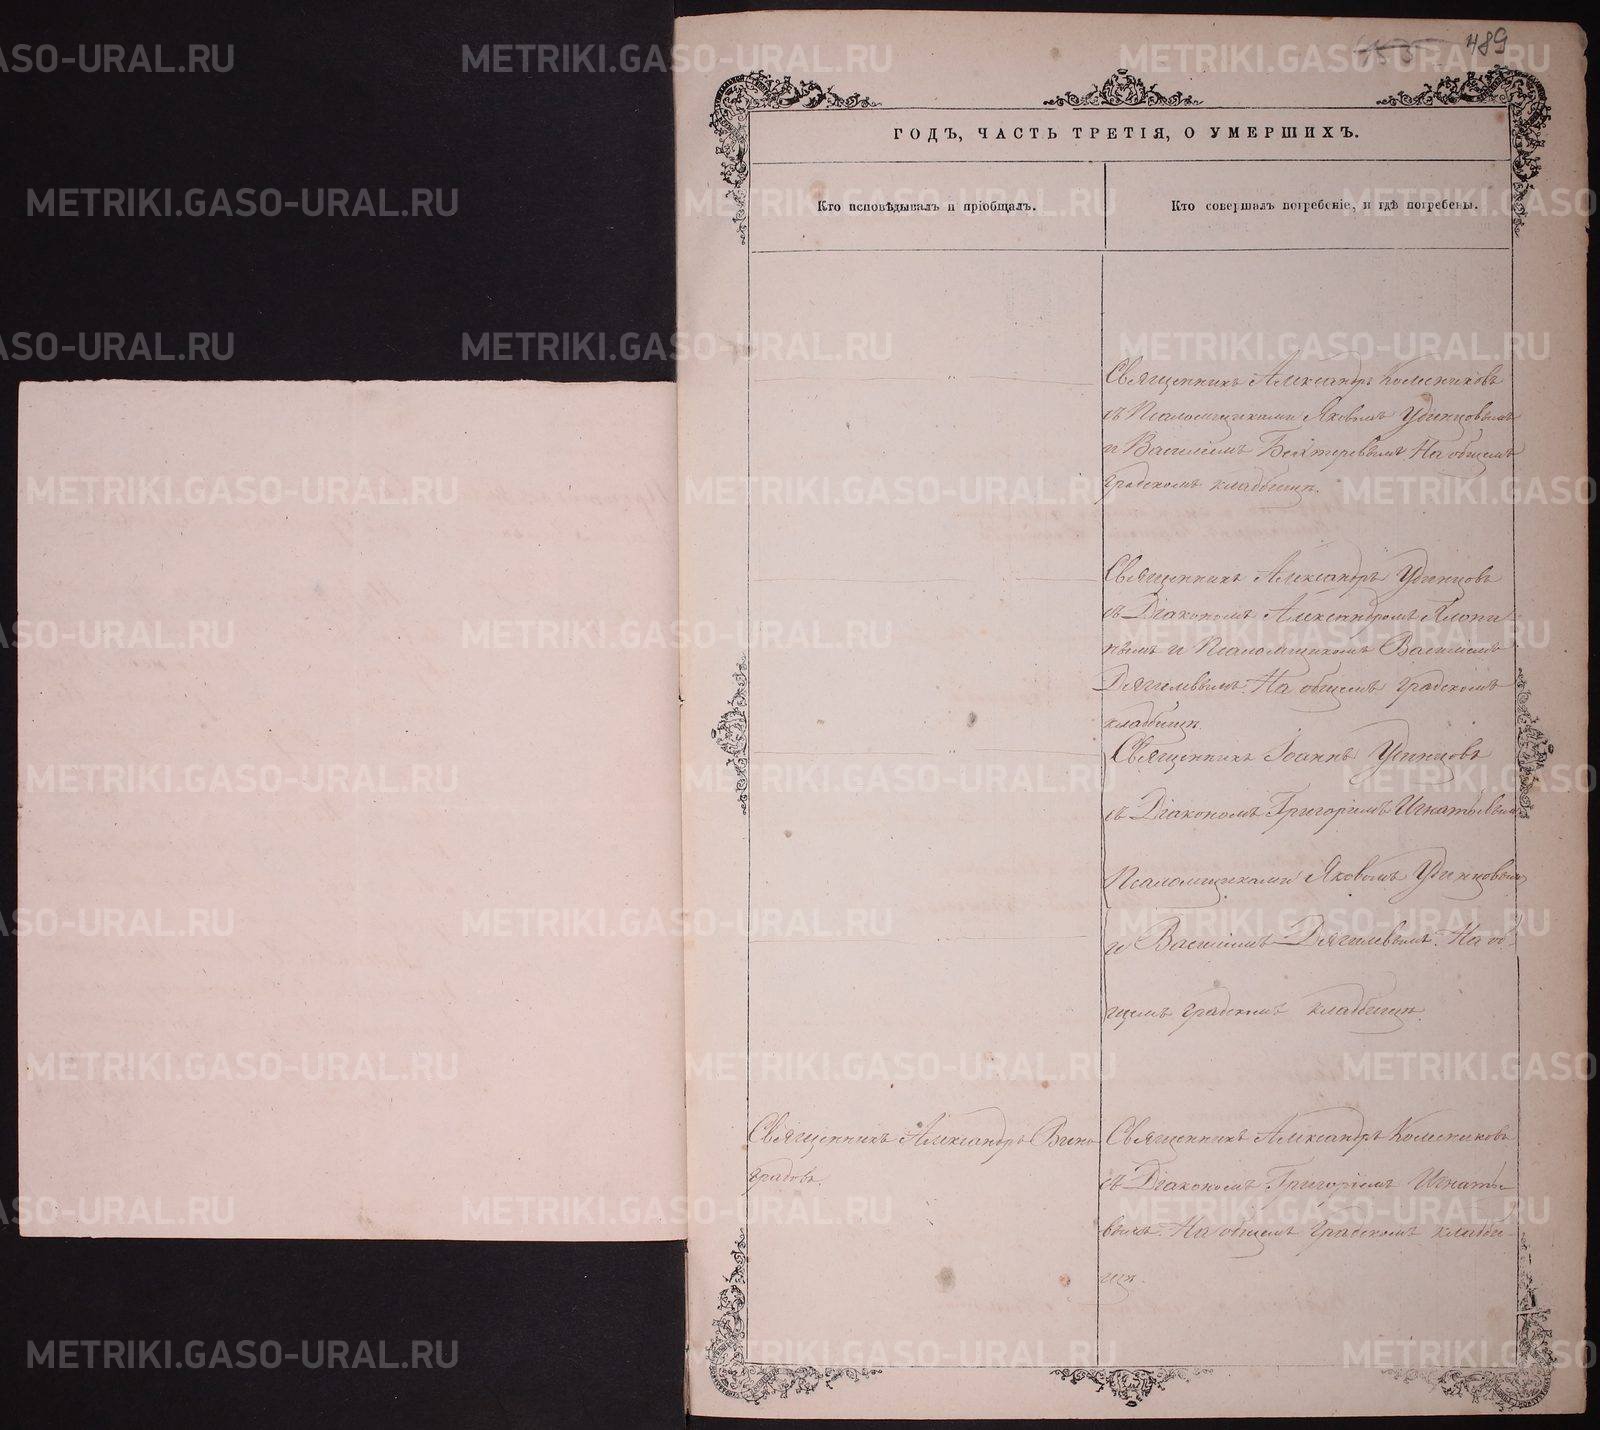 489
ГОДЪ, ЧАСТЬ ТРЕТІЯ, О УМЕРШИХЪ.
Кто исповѣдывалъ и пріобщалъ.
Кто совершалъ погребеніе, и гдѣ погребены.
Священникъ Александръ Колесниковъ
съ Псаломщиками Яковомъ Удинцовымъ
и Василіемъ Бехтеревымъ. На общемъ
градскомъ кладбищѣ.
Священникъ Александръ Удинцовъ
съ Діакономъ Александромъ
и Псаломщикомъ Василіемъ
Дягилевымъ. На общемъ градскомъ
кладбищѣ.
Священникъ Іоаннъ Удинцовъ
съ Діакономъ Григоріемъ Игнатьевымъ
Псаломщиками Яковомъ Удинцовымъ
и Василіемъ Дягилевымъ. На об-
щемъ градскомъ кладбищѣ.
Священникъ Александръ Вино
градовъ.
Священникъ Александръ Колесниковъ
съ Діакономъ Григоріемъ Игнатье
вымъ. На общемъ градскомъ кладби-
щѣ.
METRIKI.GASO-URAL.RU